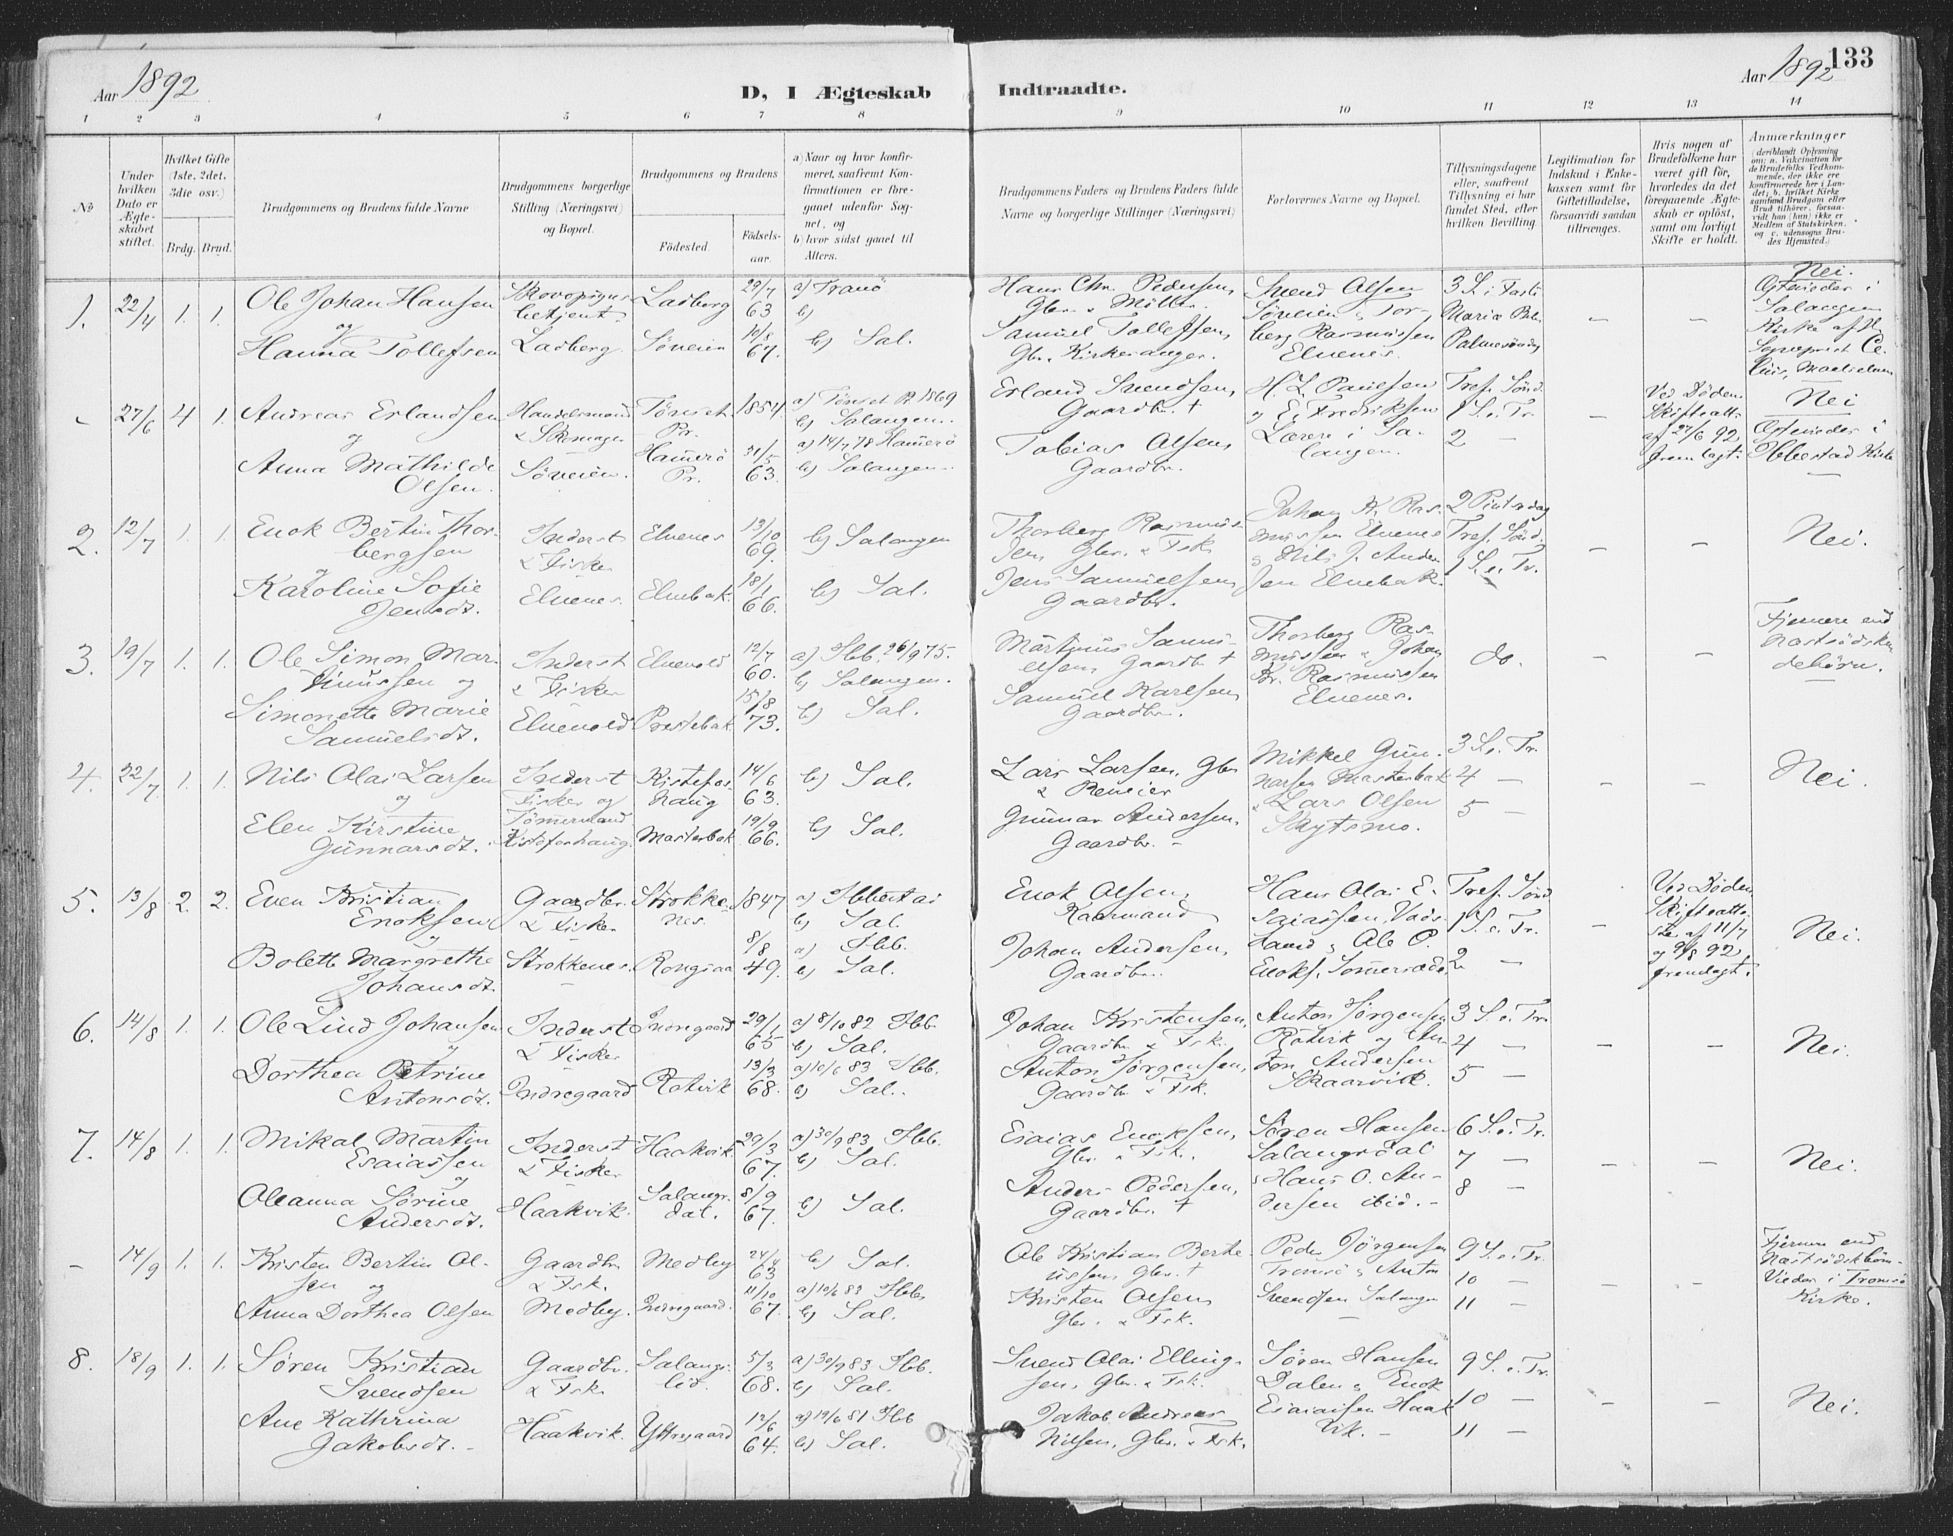 Aar 1892
D, I Ægteskab
Indtraadte.
Aar 1892
133
1 2 3 4 5 6 7 8 9 10 11 12 13 14
No
Under hvilken Dato er Ægteskabet stiftet.
Hvilket Gifte (1ste, 2det, 3die osv.)
Brdg. Brud.
Brudgommens og Brudens fulde Navne
Brudgommens borgerlige Stilling (Næringsvei) og Bopæl.
Brudgommens og Brudens
Fødested.
Fødselsaar.
a) Naar og hvor konfirmeret, saafremt Konfirmationen er foregaaet udenfor Sognet, og
b) hvor sidst gaaet til Alters.
Brudgommens Faders og Brudens Faders fulde Navne og borgerlige Stillinger (Næringsvei)
Forlovernes Navne og Bopæl.
Tillysningsdagene eller, saafremt Tillysning ei har fundet Sted, efter hvilken Bevilling
Legitimation for Indskud i Enkekassen samt for Giftetilladelse, forsaavidt saadan tiltrænges.
Hvis nogen af Brudefolkene har været gift før, hvorledes da det foregaaende Ægteskab er opløst, samt om lovligt Skifte er holdt.
Anmærkninger (deriblandt Oplysning om: a. Vakcination for de Brudefolks Vedkommende, der ikke ere konfirmerede her i Landet; b. hvilket Kirkesamfund Brudgom eller Brud tilhører, forsaavidt han (hun) ikke er Medlem af Statskirken, og c. udensogns Brudes Hjemsted.)
1. 22/4 1. 1. Ole Johan Hansen Ladberg 29/7 63 a) Tranö b)
og Hanna Tollefsen Ladberg. Söveien 67. b) Sal.
Hans Chr. Pedersen, Gbr. & Möller.
Samuel Tollefsen, Gbr. Kirkesanger.
Svend Olsen Söveien & Torberg Rasmussen Elvenes.
3 S. i Faste Mariæ Beb. Palmesöndag
– –
Nei.
Viede i Salangen Kirke af
- 27/6 4 1. Andreas Erlandsen Handelsmand & Skomager Töneset Pr. 1854. a) Töneset 1869 b) Salangen.
og Anna Mathilde Olsen. Söveien. Hammerö Pr. 31/5 63. a) 14/7 78 Hammerö b) Salangen.
Erland Svendsen, Gaardbr. †
Tobias Olsen, Gaardbr.
H. L. Paulsen & E. Fredriksen Lærere i Salangen.
Tref. Sönd. 1 S. e. Tr. 2 —
–
Ved Döden. Skifteatt. af 27/6 92 fremlagt.
Nei
Viede i Ibbestad Kirke
2. 12/7 1. 1. Enok Bertin Thorbergsen Inderst & Fisker Elvenes 13/10 69. b) Salangen
og Karoline Sofie Jensdt. Elvenes. Elvebak. 18/1 66. b) Sal.
Thorberg Rasmussen Gbr. & Fsk.
Jens Samuelsen, Gaardbr.
Johan K. Rasmussen Elvenes & Nils J. Andersen Elvebak.
2 Pintsedag Tref. Sönd. 1 S. e. Tr.
– –
Nei.
3. 19/7 1. 1. Ole Simon Martinussen og Inderst & Fisker Elvevold 12/7 60. a) Ibb. 26/9 75. b) Salangen.
Simonette Marie Samuelsdt. Elvevold Prestebak. 15/8 73. b) Sal.
Martinus Samuelsen Gaardbr. †
Samuel Karlsen, Gaardbr.
Thorberg Rasmussen & Johan Kr. Rasmussen Elvenes.
do.
– –
Fjernere end Næstsödskendebörn.
4. 22/7 1. 1. Nils Olai Larsen Inderst Fisker og Tömmermand Kistefoshaug 14/6 63. b) Sal.
og Elen Kirstine Gunnarsdt. Kistefoshaug. Masterbak 19/9 66. b) Sal.
Lars Larsen, Gbr & Reneier
Gunnar Andersen, Gaardbr. –
Mikkel Gunnarsen Masterbak & Lars Olsen Skytsmo.
3 S. e. Tr. 4 — 5 —
– –
Nei.
5. 13/8 2. 2. Even Kristian Enoksen Gaardbr. & Fisker Strokkenes. 1847 a) Ibbestad b) Sal.
og Bolette Margrethe Johansdt. Strokkenes. 8/8 49. a) Ibb. b) Sal.
Enok Olsen, Kaarmand
Johan Andersen, Gaardbr.
Hans Olai Esaiassen, & Ole P. Enoks.
Tref. Sönd. 1 S. e. Tr. 2 —
–
Ved Döden. Skifteatter af 11/7 og 9/8 92. fremlagt.
Nei.
6. 14/8 1. 1. Ole Lind Johansen Inderst & Fisker Indregaard 29/1 65 a) 8/10 82 Ibb. b) Sal.
og Dorthea Petrine Antonsdt. Indregaard Rotvik 13/3 68. a) 10/6 83 Ibb. b) Sal.
Johan Kristensen, Gaardbr. & Fsk.
Anton Jörgensen, Gaardbr. & Fsk.
Anton Jörgensen Rotvik og Anton Andersen Skaarvik.
3 S. e. Tr. 4 — 5 —
– –
Nei.
7. 14/8 1. 1. Mikal Martin Esaiassen Inderst & Fisker Haakvik. 29/3 67. a) 30/9 83 Ibb. b) Sal.
og Oleanna Sörine Andersdt. Haakvik. Salangsdal. 8/9 67. b) Sal.
Esaias Enoksen, Gbr. & Fsk.
Anders Pedersen, Gaardbr. †
Sören Hansen Salangsdal & Hans O. Andersen ibid. –
6 S. e. Tr. 7 — 8 —
– –
Nei.
- 14/9 1. 1. Kristen Bertin Olsen og Gaardbr. & Fsk. Medby 24/4 63 b) Sal.
Anna Dorthea Olsen Medby. Indregaard. 11/10 67. a) 10/6 83 Ibb. b) Sal.
Ole Kristian Berteussen, Gbr. †
Kristen Olsen, Gbr. & Fsk.
Peder Jörgensen Tromsö & Anton Svendsen Salangen
9 S. e. Tr. 10 — 11 —
– –
Fjernere end Næstsödskbörn. – Viedes i Tromsö Kirke.
8. 18/9 1. 1. Sören Kristian Svendsen Gaardbr. & Fsk. Salangslid. 5/3 68. a) 30/9 83 Ibb. b) Sal.
Ane Kathrina Jakobsdt. – Haakvik. Yttregaard 12/6 64. a) 19/6 81 Ibb b) Sal.
Svend Olai Ellingsen, Gbr. & Fsk.
Jakob Andreas Nilsen, Gbr. & Fsk.
Sören Hansen Dalen & Enok Esaiassen Haakvik. –
9 S. e. Tr. 10 — 11 —
– –
Nei.